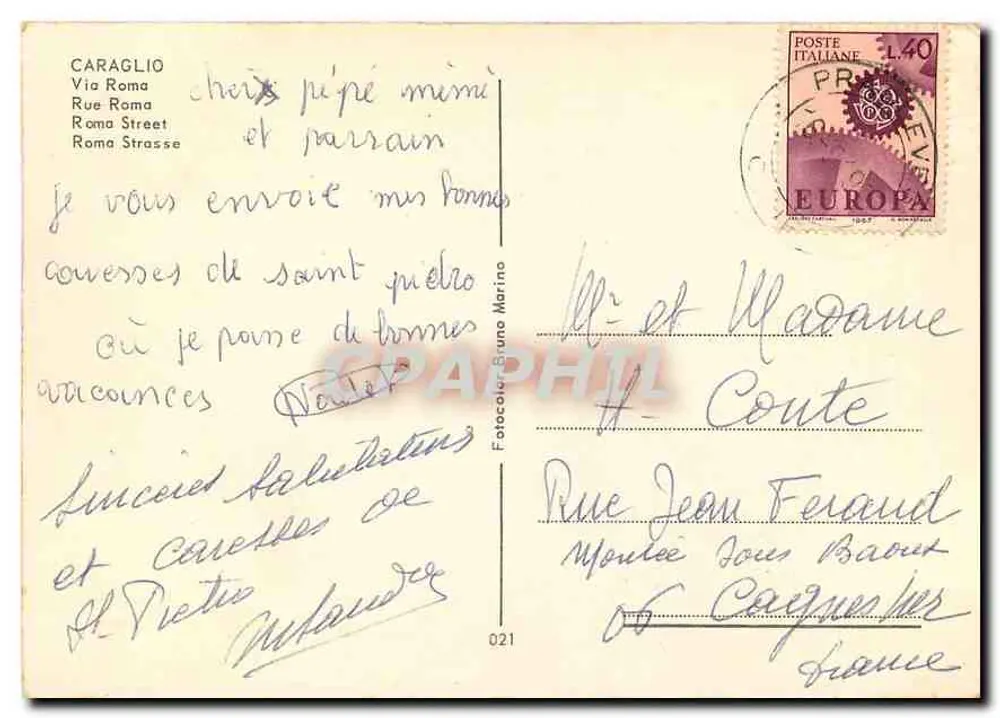 CARAGLIO
Via Roma
Rue Roma
Roma Street
Roma Strasse
chers pépé mémé
et parrain
je vous envoie mes bonnes
caresses de saint piedro
où je passe de bonnes
vacances
Sincères Salutations
et caresses de
St. Pietro
Fotocolor Bruno Marino
021
POSTE
ITALIANE
L.40
EUROPA
1967
PR
Mr et Madame
H. Conte
Rue Jean Feraud
Montée Sous Baous
06 Cagnes Mer
France
CPAPHIL